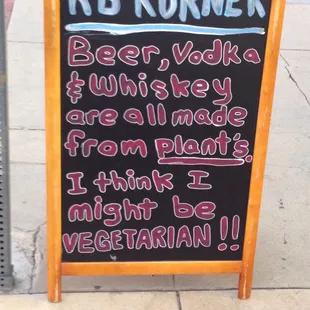 RB KORNER
Beer, Vodka
& Whiskey
are all made
from plant's.
I think I
might be
VEGETARIAN !!